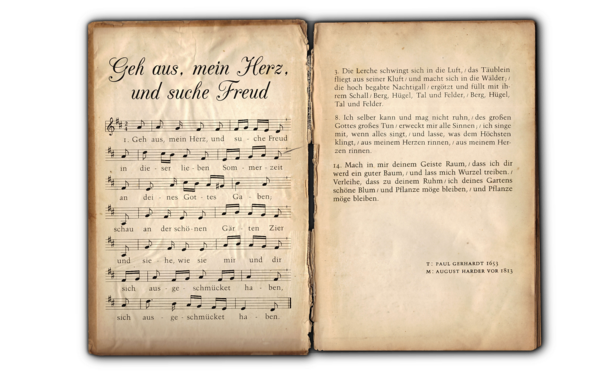 Geh aus, mein Herz,
und suche Freud
1. Geh aus, mein Herz, und su - che Freud
in die - ser lie - ben Som - mer - zeit
an dei - nes Got - tes Ga - ben;
schau an der schö - nen Gär - ten Zier
und sie - he, wie sie mir und dir
sich aus - ge - schmücket ha - ben,
sich aus - ge - schmücket ha - ben.
3. Die Lerche schwingt sich in die Luft, / das Täublein
fliegt aus seiner Kluft / und macht sich in die Wälder; /
die hoch begabte Nachtigall / ergötzt und füllt mit ih-
rem Schall / Berg, Hügel, Tal und Felder, / Berg, Hügel,
Tal und Felder.
8. Ich selber kann und mag nicht ruhn, / des großen
Gottes großes Tun / erweckt mir alle Sinnen; / ich singe
mit, wenn alles singt, / und lasse, was dem Höchsten
klingt, / aus meinem Herzen rinnen, / aus meinem Her-
zen rinnen.
14. Mach in mir deinem Geiste Raum, / dass ich dir
werd ein guter Baum, / und lass mich Wurzel treiben. /
Verleihe, dass zu deinem Ruhm / ich deines Gartens
schöne Blum / und Pflanze möge bleiben, / und Pflanze
möge bleiben.
T: PAUL GERHARDT 1653
M: AUGUST HARDER VOR 1813